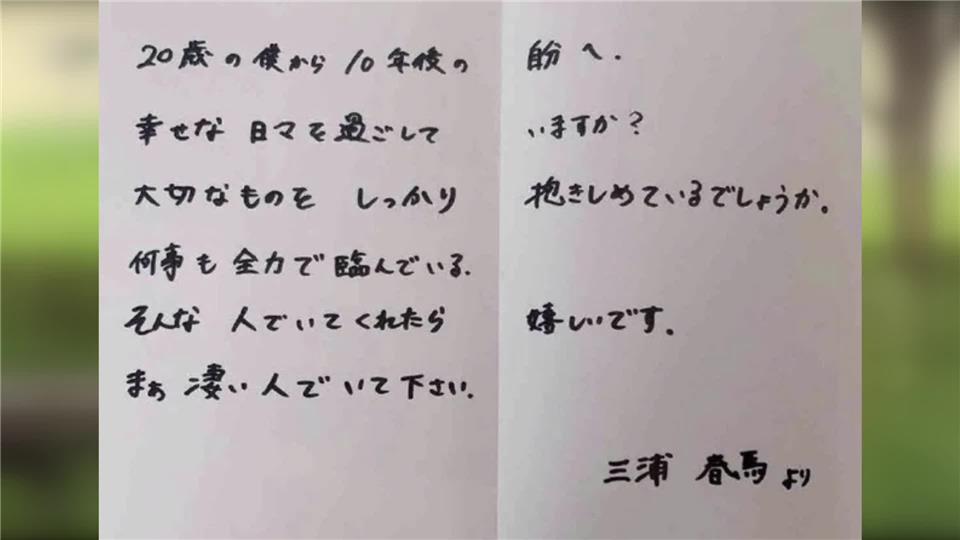 20歳の僕から10年後の自分へ.
幸せな日々を過ごしていますか?
大切なものを しっかり抱きしめているでしょうか。
何事も全力で臨んでいる.
そんな 人でいてくれたら嬉しいです。
まぁ 凄い人でいて下さい.
三浦 春馬 より